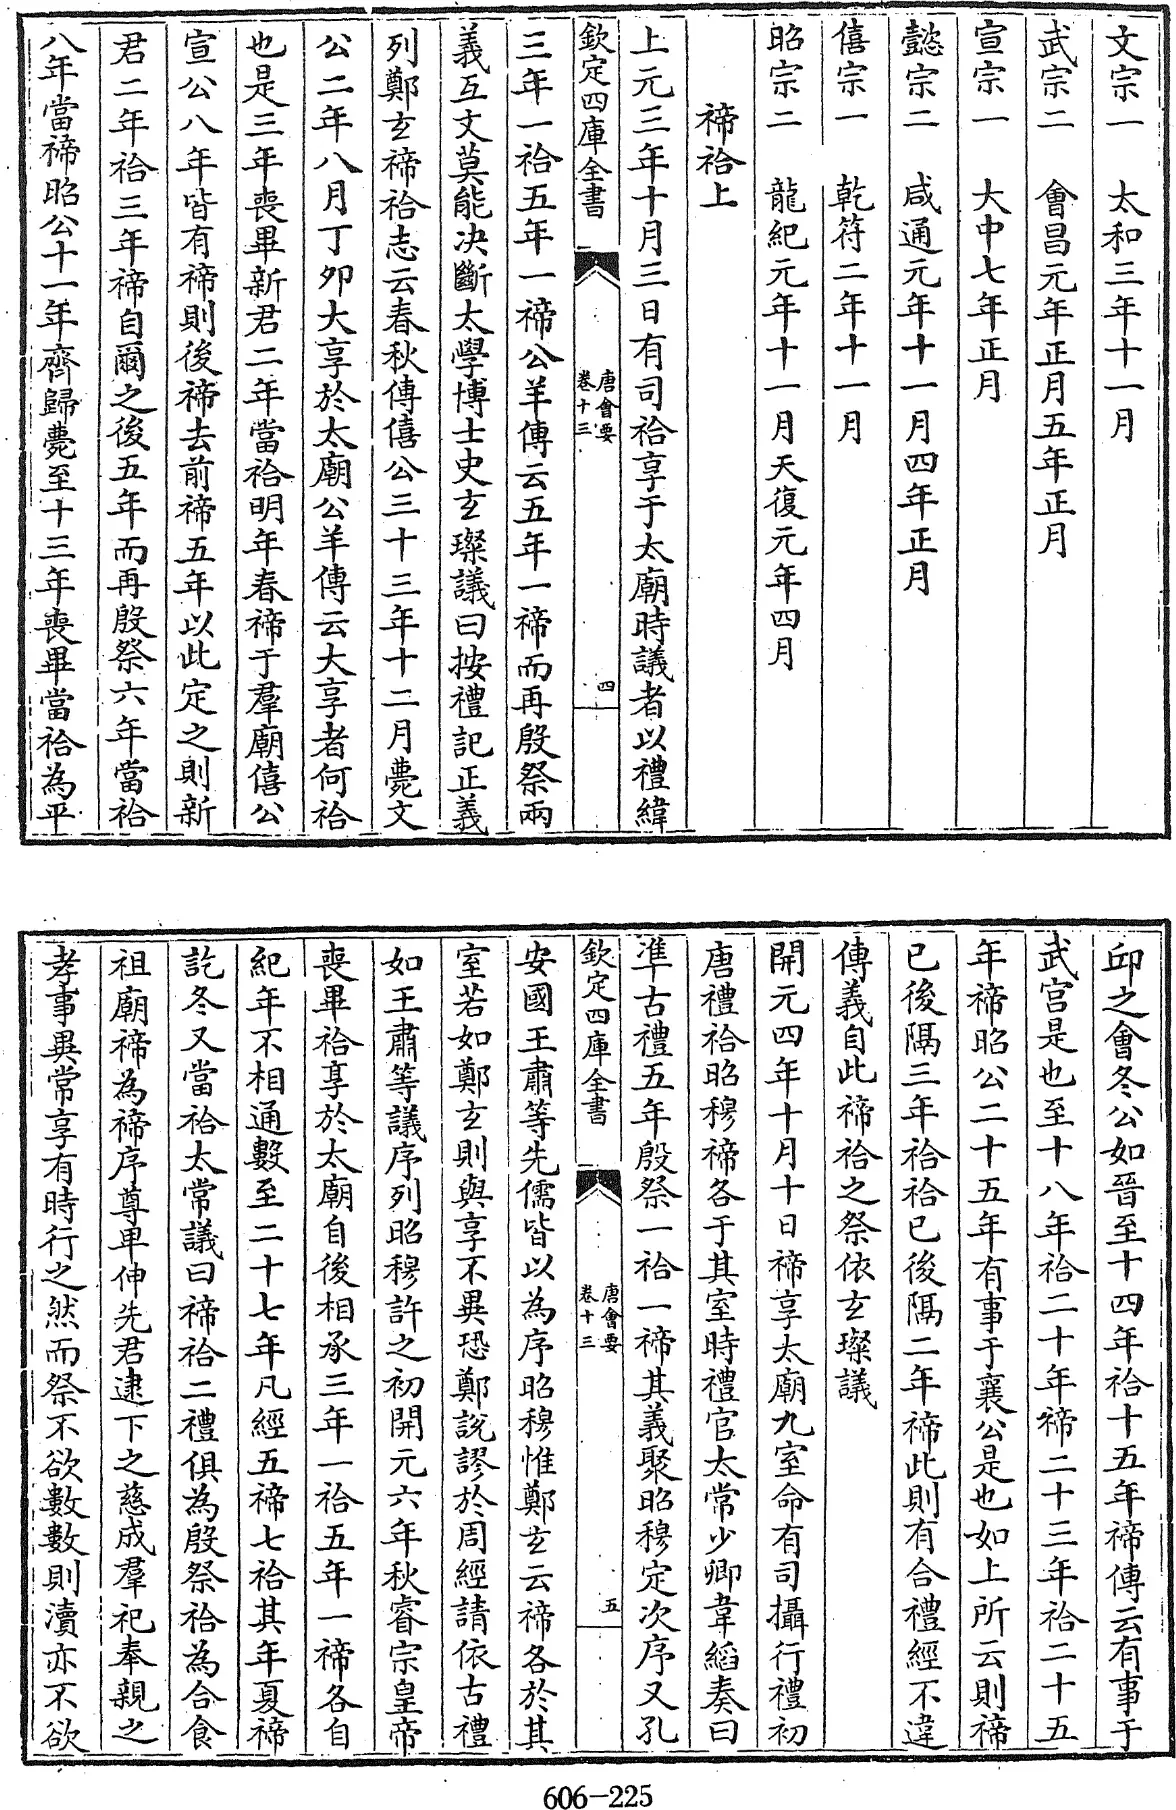 文宗一　太和三年十一月
武宗二　會昌元年正月五年正月
宣宗一　大中七年正月
懿宗二　咸通元年十一月四年正月
僖宗一　乾符二年十一月
昭宗二　龍紀元年十一月天復元年四月
禘祫上
上元三年十月三日有司祫享于太廟時議者以禮緯
欽定四庫全書　唐會要卷十三　四
三年一祫五年一禘公羊傳云五年一禘而再殷祭兩
義互文莫能決斷太學博士史玄璨議曰按禮記正義
列鄭玄禘祫志云春秋傳僖公三十三年十二月薨文
公二年八月丁卯大享於太廟公羊傳云大享者何祫
也是三年喪畢新君二年當祫明年春禘于羣廟僖公
宣公八年皆有禘則後禘去前禘五年以此定之則新
君二年祫三年禘自爾之後五年而再殷祭六年當祫
八年當禘昭公十一年齊歸薨至十三年喪畢當祫為平
邱之會冬公如晉至十四年祫十五年禘傳云有事于
武宮是也至十八年祫二十年禘二十三年祫二十五
年禘昭公二十五年有事于襄公是也如上所云則禘
已後隔三年祫祫已後隔二年禘此則有合禮經不違
傳義自此禘祫之祭依玄璨議
開元四年十月十日禘享太廟九室命有司攝行禮初
唐禮祫昭穆禘各于其室時禮官太常少卿韋縚奏曰
準古禮五年殷祭一祫一禘其義聚昭穆定次序又孔
欽定四庫全書　唐會要卷十三　五
安國王肅等先儒皆以為序昭穆惟鄭玄云禘各於其
室若如鄭玄則與享不異恐鄭說謬於周經請依古禮
如王肅等議序列昭穆許之初開元六年秋睿宗皇帝
喪畢祫享於太廟自後相承三年一祫五年一禘各自
紀年不相通數至二十七年凡經五禘七祫其年夏禘
訖冬又當祫太常議曰禘祫二禮俱為殷祭祫為合食
祖廟禘為禘序尊卑伸先君逮下之慈成羣祀奉親之
孝事異常享有時行之然而祭不欲數數則瀆亦不欲
606-225